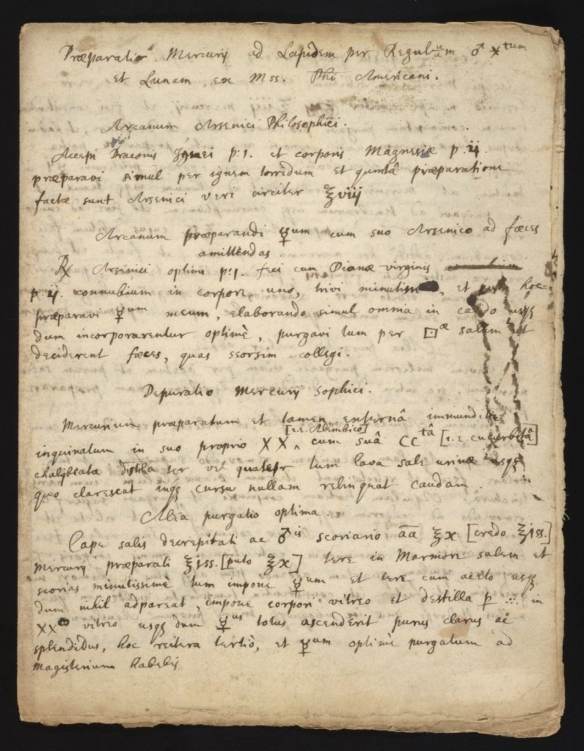 Præparatio Mercurij ad Lapidem per Regulum ♂ 
et Lunam, ex Mss. Phi Americani.
Arcanum Arsenici Philosophici.
Accepi Draconis Ignei p. 1. et corporis Magnesiæ p. ij
præparavi simul per ignem torridum et quinta præparatione
facta sunt Arsenici veri circiter ℥viij
Arcanum præparandi ☿um cum suo Arsenico ad fæces
amittendas
℞ Arsenici optimi p. 1. feci cum Dianæ virginis
p. ij connubium in corpore uno, trivi minutim et hoc
præparavi ☿um meum, elaborando simul omnia in calido usq
dum incorporarentur optimè, purgavi tum per salem et
deciderent fæces, quas seorsim collegi.
Depuratio Mercurij Sophici.
Mercurium præparatum et tamen externâ immunditie
[i.e. Alembico]
inquinatum in suo proprio XX, cum suâ CCtâ [i.e. cucurbitâ]
chalybeata distilla ter vel quater tum lava sale urinæ usq
quo clarescat inq cursu nullam relinquat caudam.
Alia purgatio optima.
Cape salis decrepitati ac ♂is scoriarū āā ℥x [credo ℥iss.]
Mercurij præparati ℥iss. [puto ℥x] tere in Marmore salem et
scorias minutissime tum impone ☿um et tere cum aceto usq
dum nihil adpareat impone corpori vitreo et distilla p in
XX vitreo usq dum ☿us totus ascenderit purus clarus ac
splendidus, hoc reitera tertiò, et ☿um optimè purgatum ad
magisterium habebis